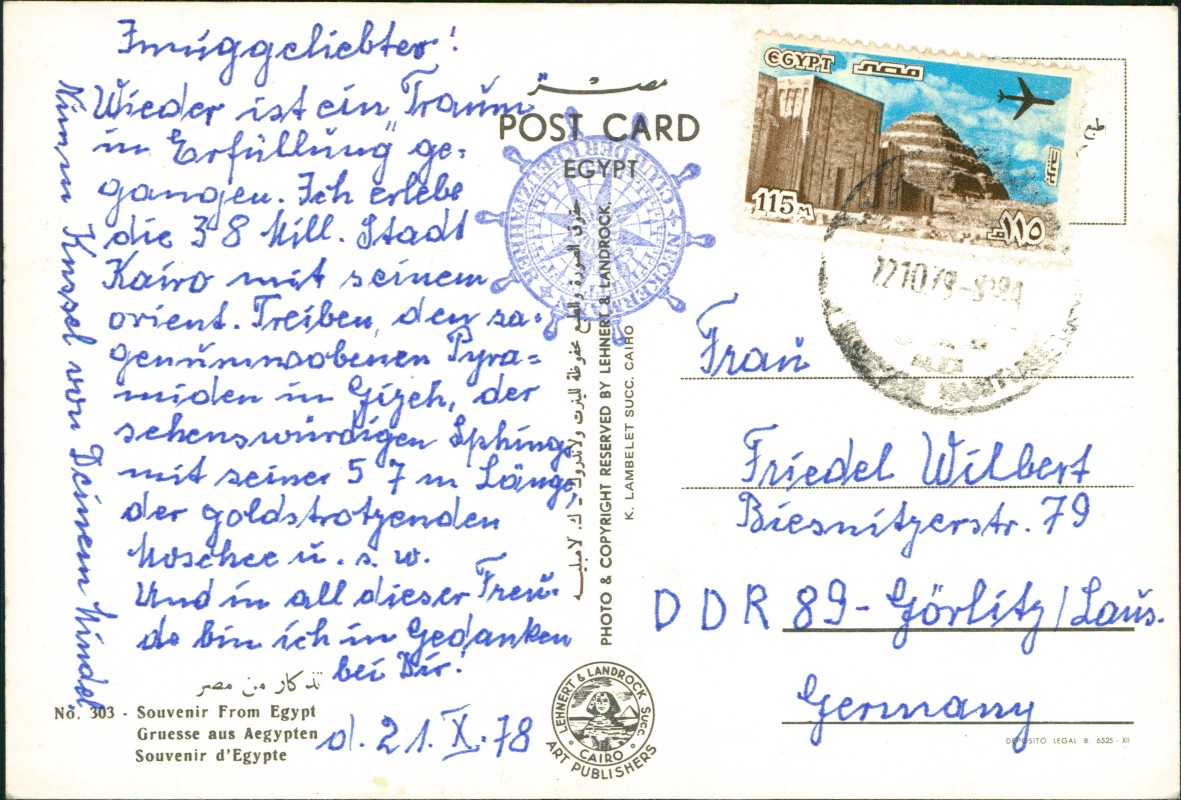 Inniggeliebter!
Wieder ist ein „Traum
in Erfüllung" ge-
gangen. Ich erlebe
die 38 Mill. Stadt
Kairo mit seinem
orient. Treiben, den sa-
genumwobenen Pyra-
miden in Gizeh, der
sehenswürdigen Sphinge
mit seiner 57 m Länge,
der goldstrotzenden
Moschee u. s. w.
Und in all dieser Freu-
de bin ich in Gedanken
bei Dir!
d. 21. X. 78
Kussel von Deinem Mindel
تذكار من مصر
No. 303 - Souvenir From Egypt
Gruesse aus Aegypten
Souvenir d'Egypte
مصر
POST CARD
EGYPT
حقوق الصورة والطبع محفوظة للينرت ولاندروك - ك. لامبليه
PHOTO & COPYRIGHT RESERVED BY LEHNERT & LANDROCK
K. LAMBELET SUCC. CAIRO
NECKERMANN
LEHNERT & LANDROCK SUCC.
CAIRO
ART PUBLISHERS
EGYPT مصر
115 M
١١٥ م
Frau
Friedel Wilbert
Biesnitzerstr. 79
DDR 89-Görlitz/Laus.
Germany
DEPOSITO LEGAL B. 6525 - XII